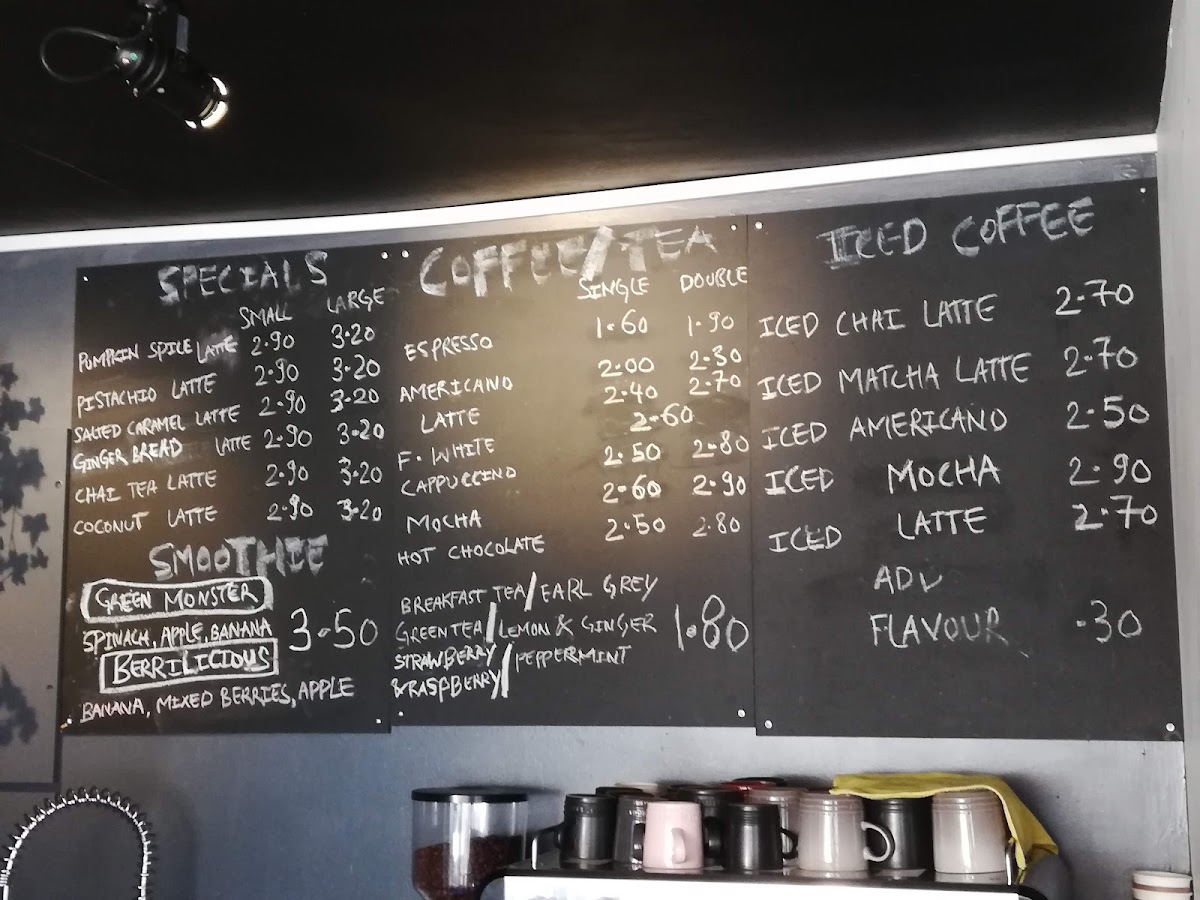 SPECIALS
SMALL LARGE
PUMPKIN SPICE LATTE 2.90 3.20
PISTACHIO LATTE 2.90 3.20
SALTED CARAMEL LATTE 2.90 3.20
GINGER BREAD LATTE 2.90 3.20
CHAI TEA LATTE 2.90 3.20
COCONUT LATTE 2.90 3.20
SMOOTHIE
GREEN MONSTER
SPINACH, APPLE, BANANA 3.50
BERRILICIOUS
BANANA, MIXED BERRIES, APPLE
COFFEE/TEA
SINGLE DOUBLE
ESPRESSO 1.60 1.90
AMERICANO 2.00 2.30
LATTE 2.40 2.70
F. WHITE 2.60
CAPPUCCINO 2.50 2.80
MOCHA 2.60 2.90
HOT CHOCOLATE 2.50 2.80
BREAKFAST TEA/EARL GREY
GREEN TEA/LEMON & GINGER 1.80
STRAWBERRY/PEPPERMINT
& RASPBERRY/
ICED COFFEE
ICED CHAI LATTE 2.70
ICED MATCHA LATTE 2.70
ICED AMERICANO 2.50
ICED MOCHA 2.90
ICED LATTE 2.70
ADD
FLAVOUR .30